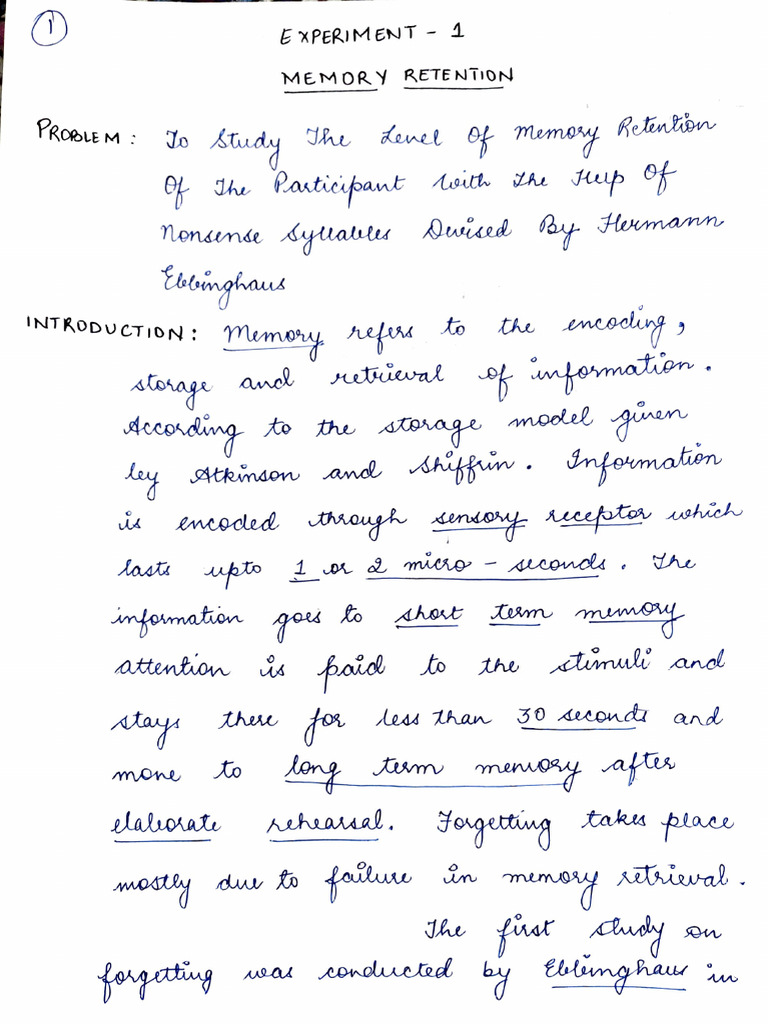 1
EXPERIMENT - 1
MEMORY RETENTION
PROBLEM: To Study The Level Of Memory Retention
Of The Participant With The Help Of
Nonsense Syllables Devised By Hermann
Ebbinghaus
INTRODUCTION: Memory refers to the encoding,
storage and retrieval of information.
According to the storage model given
by Atkinson and Shiffrin. Information
is encoded through sensory receptor which
lasts upto 1 or 2 micro - seconds. The
information goes to short term memory
attention is paid to the stimuli and
stays there for less than 30 seconds and
move to long term memory after
elaborate rehearsal. Forgetting takes place
mostly due to failure in memory retrieval.
The first study on
forgetting was conducted by Ebbinghaus in